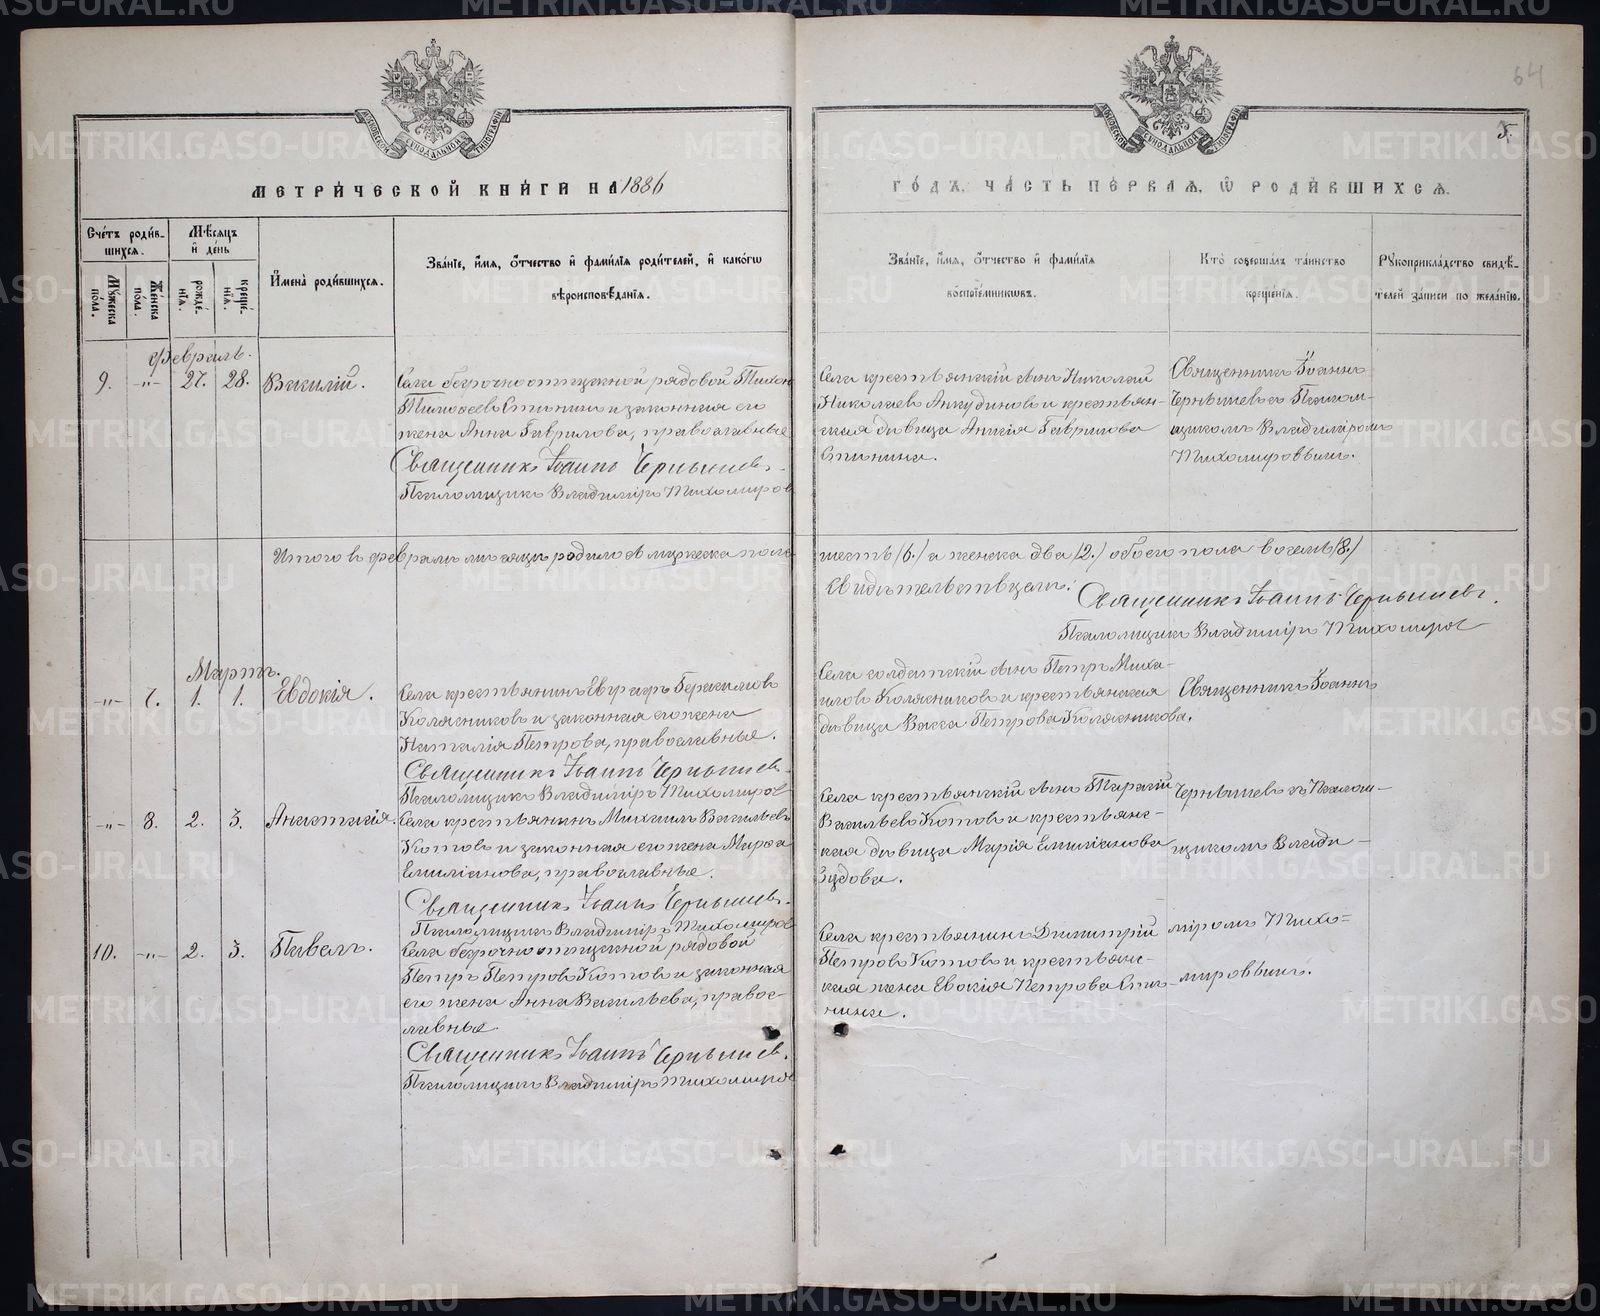 64
5.
МЕТРИ́ЧЕСКОЙ КНИ́ГИ НА 1886
ГО́ДЪ, ЧА́СТЬ ПЕ́РВАЯ, Ѡ РОДИ́ВШИХСЯ.
Сче́тъ роди́вшихся.
Му́жеска по́ла.
Же́нска по́ла.
Мѣ́сяцъ и҆ де́нь
рожде́нїя.
креще́нїя.
И҆мена̀ роди́вшихся.
Зва́нїе, и҆́мя, ѻ҆́тчество и҆ фами́лїя роди́телей, и҆ како́гѡ вѣроисповѣ́данїя.
Зва́нїе, и҆́мя, ѻ҆́тчество и҆ фами́лїя воспрїе́мникѡвъ.
Кто̀ соверша́лъ та́инство креще́нїя.
Рꙋкоприкла́дство свидѣ́телей за́писи по жела́нїю.
Февраль.
9. -„- 27. 28. Василій.
Села безсрочноотпускной рядовой Тихон
Тимофеевъ Стининъ и законная его
жена Анна Гаврилова, православные
Священникъ Іоаннъ Чернышевъ.
Псаломщикъ Владиміръ Тихомиров
Села крестьянскій сынъ Николай
Николаевъ Анкудиновъ и крестьян-
ская дѣвица Анисія Гаврилова
Стинина.
Священникъ Іоаннъ
Чернышевъ съ Псалом-
щикомъ Владиміромъ
Тихомировымъ.
Итого въ февралѣ мѣсяцѣ родилось мужеска пола
шесть (6.) а женска два (2.) обоего пола восемь (8.)
Свидѣтельствуемъ:
Священникъ Іоаннъ Чернышевъ.
Псаломщикъ Владиміръ Тихомиров
Мартъ.
-„- 7. 1. 1. Евдокія.
Села крестьянинъ Евграфъ Герасимовъ
Колясниковъ и законная его жена
Наталія Петрова, православные.
Священникъ Іоаннъ Чернышевъ.
Псаломщикъ Владиміръ Тихомиров
Села солдатскій сынъ Петръ Миха-
иловъ Колясниковъ и крестьянская
дѣвица Васса Петрова Колясникова.
Священникъ Іоаннъ
-„- 8. 2. 3. Анастасія.
Села крестьянинъ Михаилъ Васильевъ
Котовъ и законная его жена Марѳа
Емиліанова, православные.
Священникъ Іоаннъ Чернышевъ.
Псаломщикъ Владиміръ Тихомиров
Села крестьянскій сынъ Тарасій
Васильевъ Котовъ и крестьянс-
кая дѣвица Марія Емиліанова
Зудова.
Чернышевъ съ Псалом-
щикомъ Влади-
10. -„- 2. 3. Павелъ.
Села безсрочноотпускной рядовой
Петръ Петровъ Котовъ и законная
его жена Анна Васильева, правос-
лавные.
Священникъ Іоаннъ Чернышев.
Псаломщикъ Владиміръ Тихомиров
Села крестьянинъ Димитрій
Петровъ Котовъ и крестьянс-
кая жена Евдокія Петрова Сти-
нина.
міромъ Тихо-
мировымъ.
METRIKI.GASO-URAL.RU